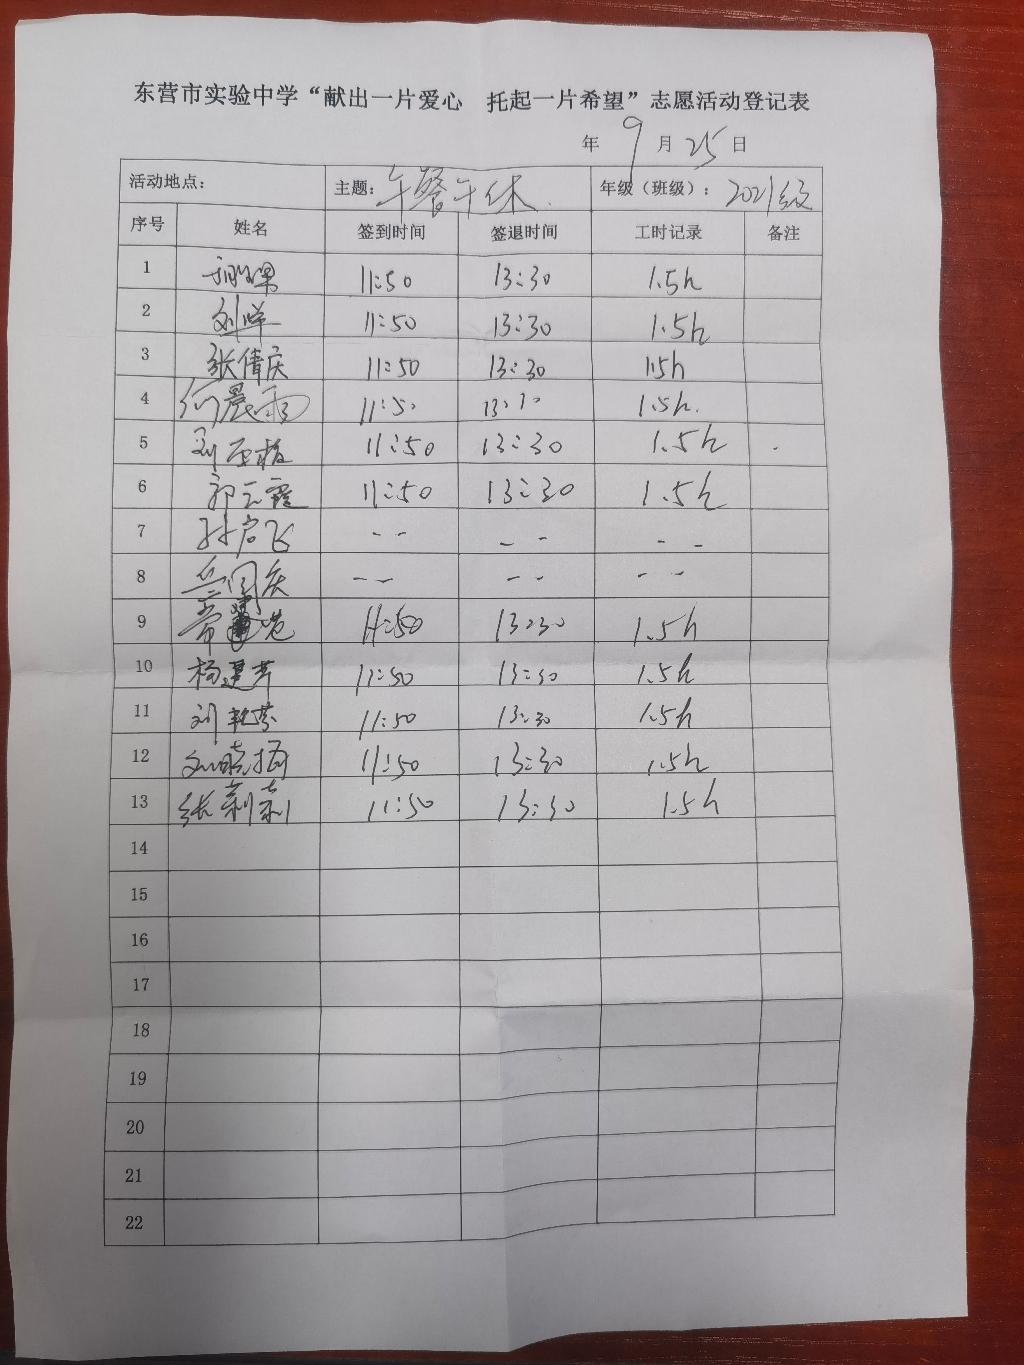 东营市实验中学“献出一片爱心 托起一片希望”志愿活动登记表
年 9 月 25 日
活动地点： 主题：午餐午休 年级（班级）：2021级
序号 姓名 签到时间 签退时间 工时记录 备注
1 11:50 13:30 1.5h
2 11:50 13:30 1.5h
3 张倩庆 11:50 13:30 1.5h
4 何晨雨 11:50 1.5h.
5 刘 11:50 13:30 1.5h
6 郭云霞 11:50 13:30 1.5h
7 孙启飞 -- -- --
8 兰国庆 -- -- --
9 11:50 13:30 1.5h
10 杨建芹 11:50 13:30 1.5h
11 刘艳芬 11:50 13:30 1.5h
12 11:50 13:30 1.5h
13 张莉莉 11:50 13:30 1.5h
14
15
16
17
18
19
20
21
22